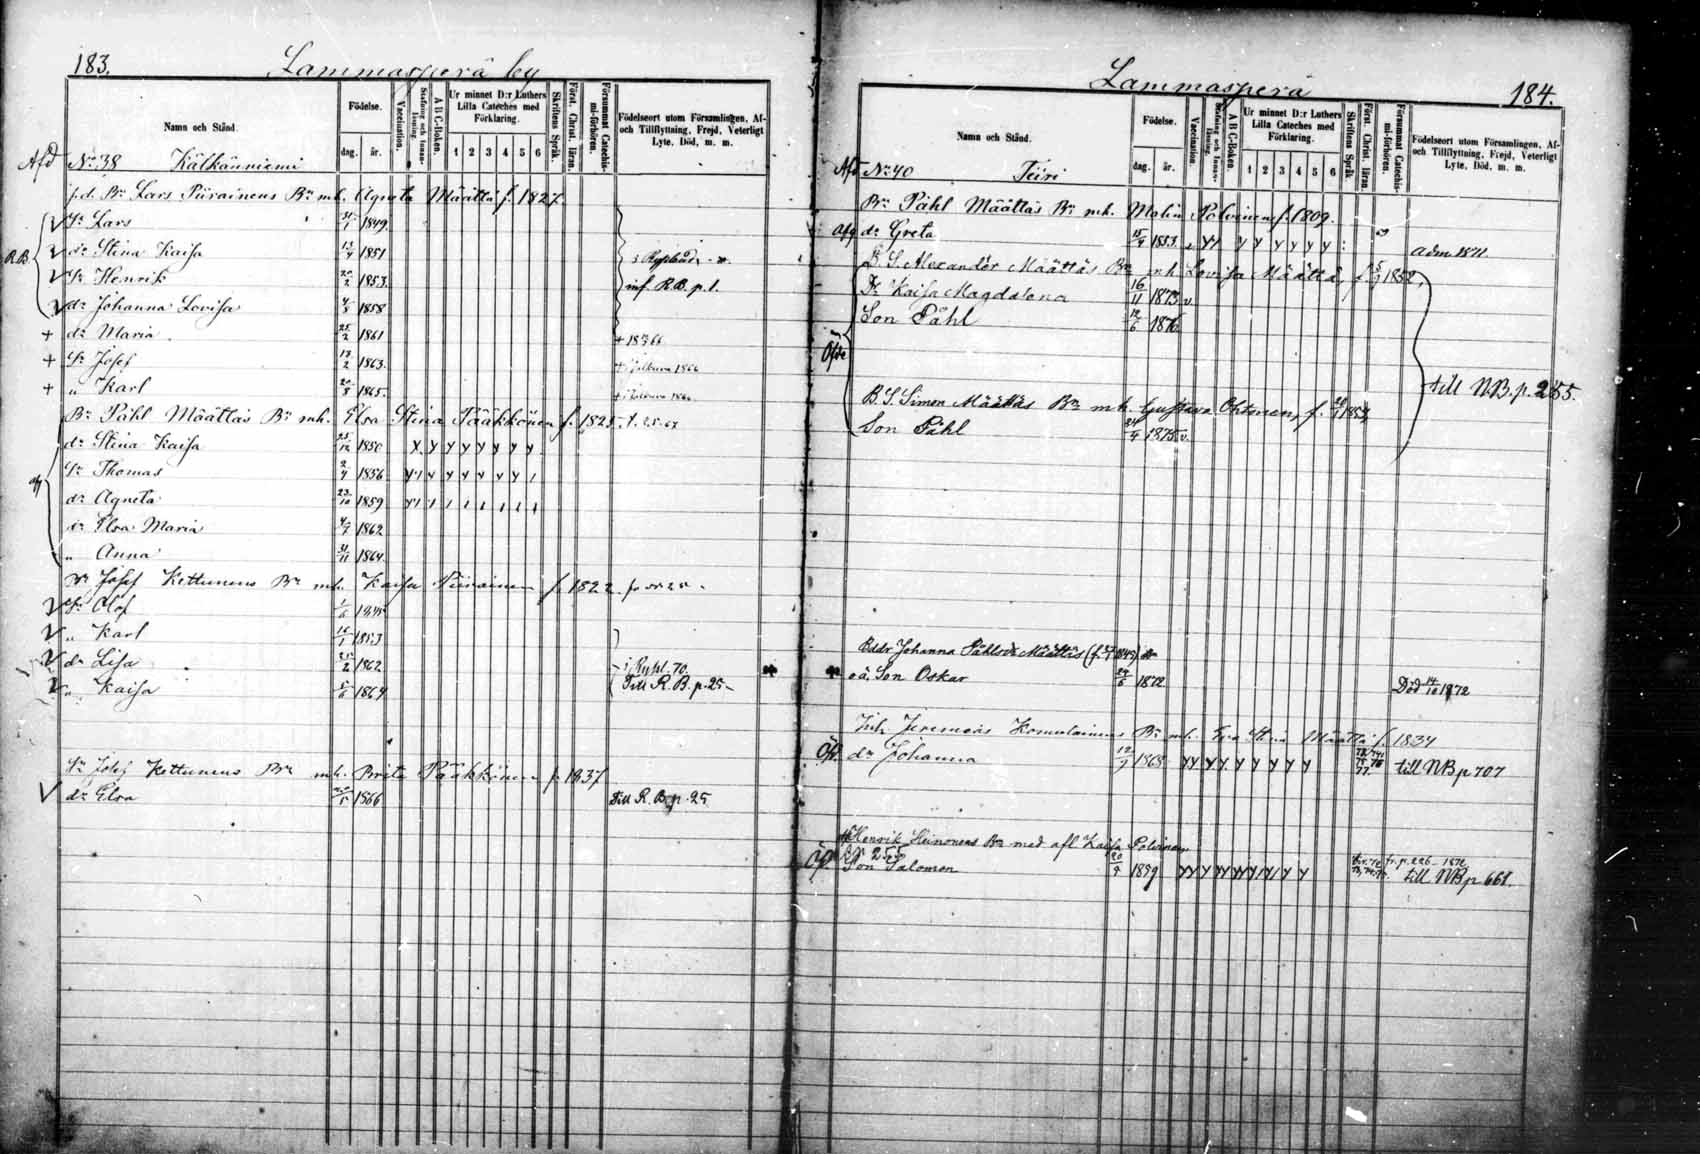 183. Lammasperä by
Namn och Stånd.
Födelse.
dag. år.
Vaccination.
Stafning och Innan-läsning.
A B C-Boken.
Ur minnet D:r Luthers Lilla Cateches med Förklaring.
1 2 3 4 5 6
Skriftens Språk.
Först. Christ. läran.
Försummat Catechis-mi-förhören.
Födelseort utom Församlingen, Af- och Tillflyttning, Frejd, Veterligt Lyte, Död, m. m.
Afd No 38 Kälkänniemi
p.d. Bn Lars Piirainens Bn mh. Agneta Määttä f. 1827.
Sn Lars 1849.
R.B. dr Stina Kaisa 13/4 1851
Sn Henrik 20/2 1853. inf. R.B. p. 1.
dr Johanna Lovisa 1858
+ dr Maria 25/2 1861 + 1866
+ Sn Josef 13/2 1863. 1866
+ " Karl 20/8 1865.
Bn Påhl Määttäs Bn mh. Elsa Stina Pääkkönen f. 1825.
dr Stina Kaisa 25/12 1850
Sn Thomas 2/4 1856
dr Agneta 23/10 1859
dr Elsa Maria 4/7 1862
" Anna 1864.
Josef Kettunens Bn mh. Kaisa Piirainen f. 1822
Sn Olof 1/6 1848
" Karl 16/1 1853
dr Lisa 25/2 1862
" Kaisa 5/6 1864 Till R.B. p. 25
Sn Josef Kettunens Bn mh. Brita Pääkkönen f. 1837
dr Elsa 1866 Till R.B. p. 25
Lammasperä 184.
Namn och Stånd.
Födelse.
dag. år.
Vaccination.
Stafning och Innan-läsning.
A B C-Boken.
Ur minnet D:r Luthers Lilla Cateches med Förklaring.
1 2 3 4 5 6
Skriftens Språk
Först. Christ. läran.
Försummat Catechis-mi-förhören.
Födelseort utom Församlingen, Af- och Tillflyttning, Frejd, Veterligt Lyte, Död, m. m.
Afd No 40 Teiri
Bn Påhl Määttäs Bn mh. Malin Polvinen f. 1809.
dr Greta 15/9 1853 adm 1871
B. S. Alexander Määttäs Bn mh Lovisa Määttä, f. 5/9 1852,
Dr Kaisa Magdalena 16/11 1873. v.
Son Påhl 12/6 1876
till N.B. p. 255.
B. S. Simon Määttäs Bn mh. Gustava Ohtonen, f. 1854
Son Påhl 24/4 1875. v.
Bddr Johanna Påhlsdr Määttäs
oä. Son Oskar 1872 Död 14/10 1872
Inh. Jeremias Komulainens Bn mh. Eva Stina Määttä f. 1834
dr Johanna 12/9 1863 till NB p 707
Henrik Heinonens Bn med afl Kaisa Polvinen
255
Son Salomon 20/9 1859 fr. p. 226 - 1872 till NB p 661.